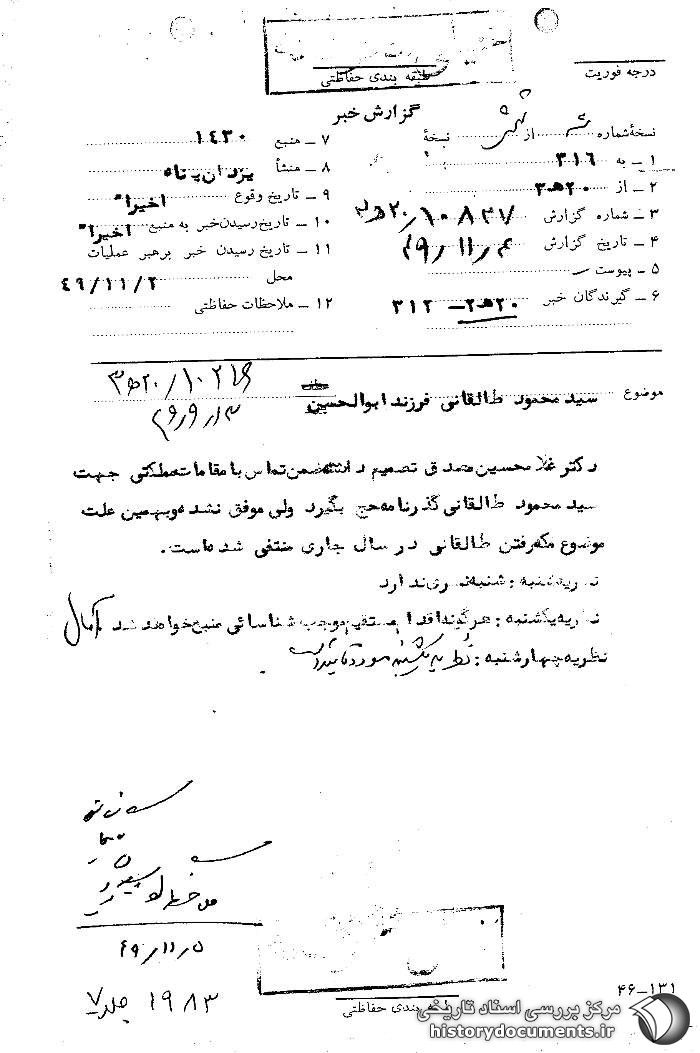 درجه فوریت
طبقه بندی حفاظتی
گزارش خبر
نسخهٔ شماره از نسخهٔ
۱ ـ به ۳۱۶
۲ ـ از ۲۰هـ۳
۳ ـ شماره گزارش ۲۰هـ۳/۱۰۸۳۷
۴ ـ تاریخ گزارش ۴۹/۱۱/۴
۵ ـ پیوست
۶ ـ گیرندگان خبر ۲۰هـ۲ـ ۳۱۲
۷ ـ منبع ۱۴۳۰
۸ ـ منشأ یزدان پناه
۹ ـ تاریخ وقوع اخیراً
۱۰ ـ تاریخ رسیدن خبر به منبع اخیراً
۱۱ ـ تاریخ رسیدن خبر برهبر عملیات
محل ۴۹/۱۱/۲
۱۲ ـ ملاحظات حفاظتی
موضوع سید محمود طالقانی فرزند ابوالحسین
دکتر غلامحسین مصدق تصمیم داشته ضمن تماس با مقامات مملکتی جهت
سید محمود طالقانی گذرنامه حج بگیرد ولی موفق نشده و بهمین علت
موضوع مکه رفتن طالقانی در سال جاری منتفی شده است.
نظریه شنبه : شنبه نظری ندارد
نظریه یکشنبه : هرگونه اقدام مستقیم موجب شناسائی منبع خواهد شد
نظریه چهارشنبه : نظریه یکشنبه مورد تایید است
۴۹/۱۱/۵
۱۹۸۳ جلد ۷
بندی حفاظتی
۴۶-۱۳۱
مرکز بررسی اسناد تاریخی
historydocuments.ir